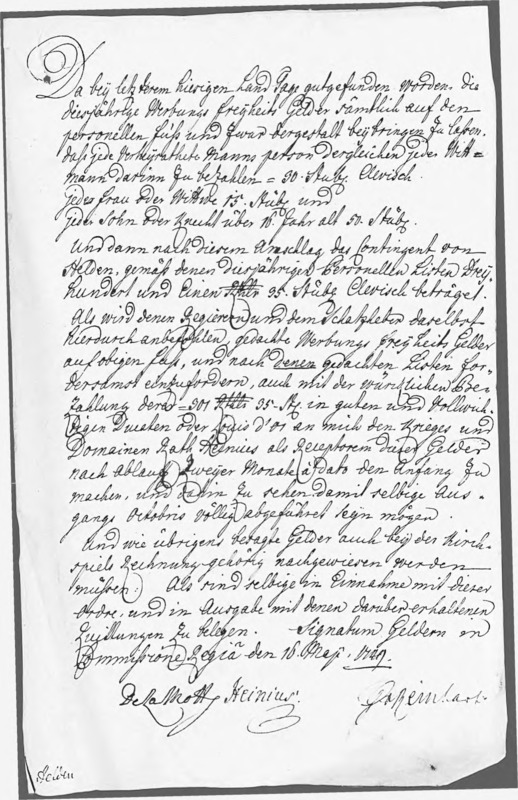 Da bey letzterem hiesigen Land Tage gutgefunden worden, die
diesjährige Werbungs Freyheits Gelder sämtlich auf den
personellen Fuss und zwar dergestalt beybringen zu lassen,
dass jede verheyrathete Manns person dergleichen jeder Witt=
mann darinn zu bezahlen = 30. Stüb. Clevisch.
jede Frau oder Wittwe 15. Stüb. und
jeder Sohn oder Knecht über 16. Jahr alt 50. Stüb.
Und dann nach diesem Anschlag das Contingent von
Helden, gemäss denen diesjährigen Personellen Listen Drey
hundert und Einen Rthlr 35. Stüber Clevisch beträget.
Als wird denen Regierern und dem Schatzheber daselbst
hierdurch anbefohlen, gedachte Werbungs Freyheits Gelder
auf obigen Fuss, und nach denen gedachten Listen for=
dersamst einzufordern, auch mit der würcklichen Be=
zahlung derer = 301 Rthlr 35. St. in guten und Vollwich=
tigen Ducaten oder Louis d'or an mich den Krieges und
Domainen Rath Heinius als Receptorem dieser Gelder
nach Ablauf Zweyer Monate a dato den Anfang zu
machen, und dahin zu sehen, damit selbige Aus=
gangs Octobris völlig abgeführet seyn mögen.
Und wie übrigens besagte Gelder auch bey der Kirch=
spiels Rechnung gehörig nachgewiesen werden
müssen: Als sind selbige in Einnahme mit dieser
Ordre, und in Ausgabe mit denen darüber erhaltenen
Quittungen zu belegen. Signatum Geldern in
Commissione Regia den 16 May. 1749
De la Motte Heinius.
Helden